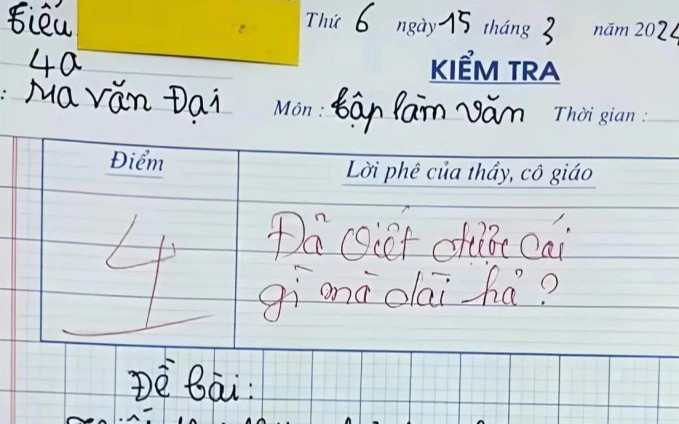 Tiểu
Thứ 6 ngày 15 tháng 3 năm 2024
4a
KIỂM TRA
: Ma Văn Đại Môn : tập làm văn Thời gian :
Điểm
Lời phê của thầy, cô giáo
4
Đã viết được cái
gì mà dài hả ?
Đề bài: